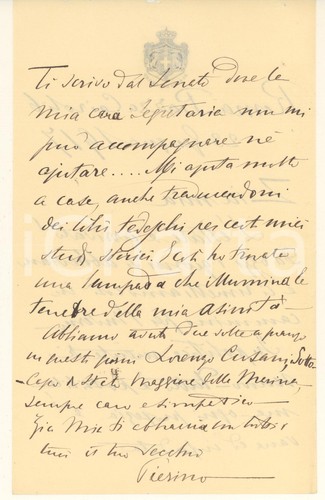 Ti scrivo dal Senato dove la
mia cara Segretaria non mi
può accompagnare nè
ajutare.... Mi ajuta molto
a casa, anche traducendomi
dei libri tedeschi per certi miei
studi storici. Ecco ho trovato
una lampada che illumina le
tenebre della mia asinità
Abbiamo avuto due volte a pranzo
in questi giorni Lorenzo Cusani, Sotto
Capo di Stato Maggiore della Marina,
sempre caro e simpatico
Gia Mise ti abbraccia con tutti i
tuoi il tuo vecchio
Pierino